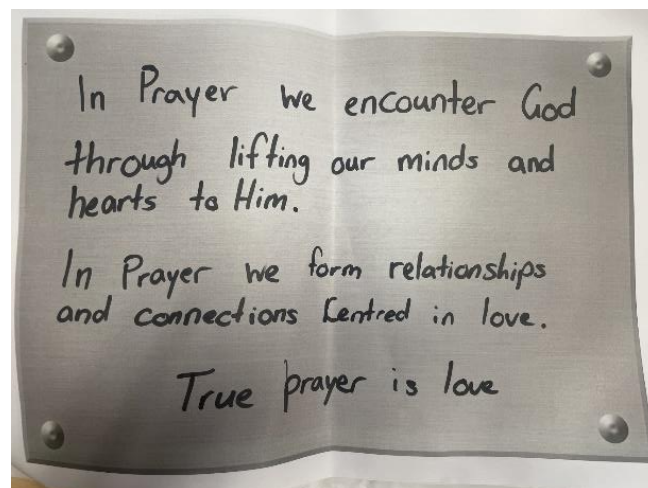 In Prayer we encounter God
through lifting our minds and
hearts to Him.
In Prayer we form relationships
and connections Centred in love.
True prayer is love